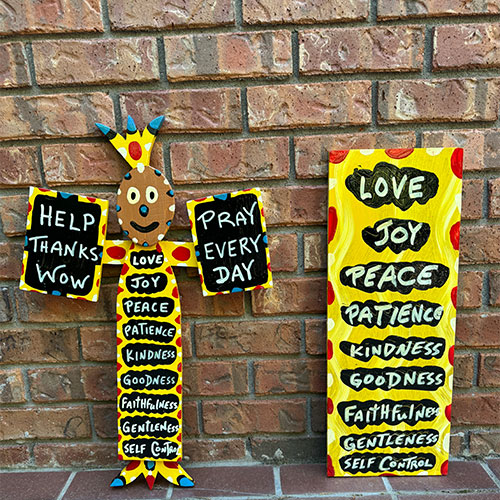 HELP
THANKS
WOW
PRAY
EVERY
DAY
LOVE
JOY
PEACE
PATIENCE
KINDNESS
GOODNESS
FAITHFULNESS
GENTLENESS
SELF CONTROL
LOVE
JOY
PEACE
PATIENCE
KINDNESS
GOODNESS
FAITHFULNESS
GENTLENESS
SELF CONTROL